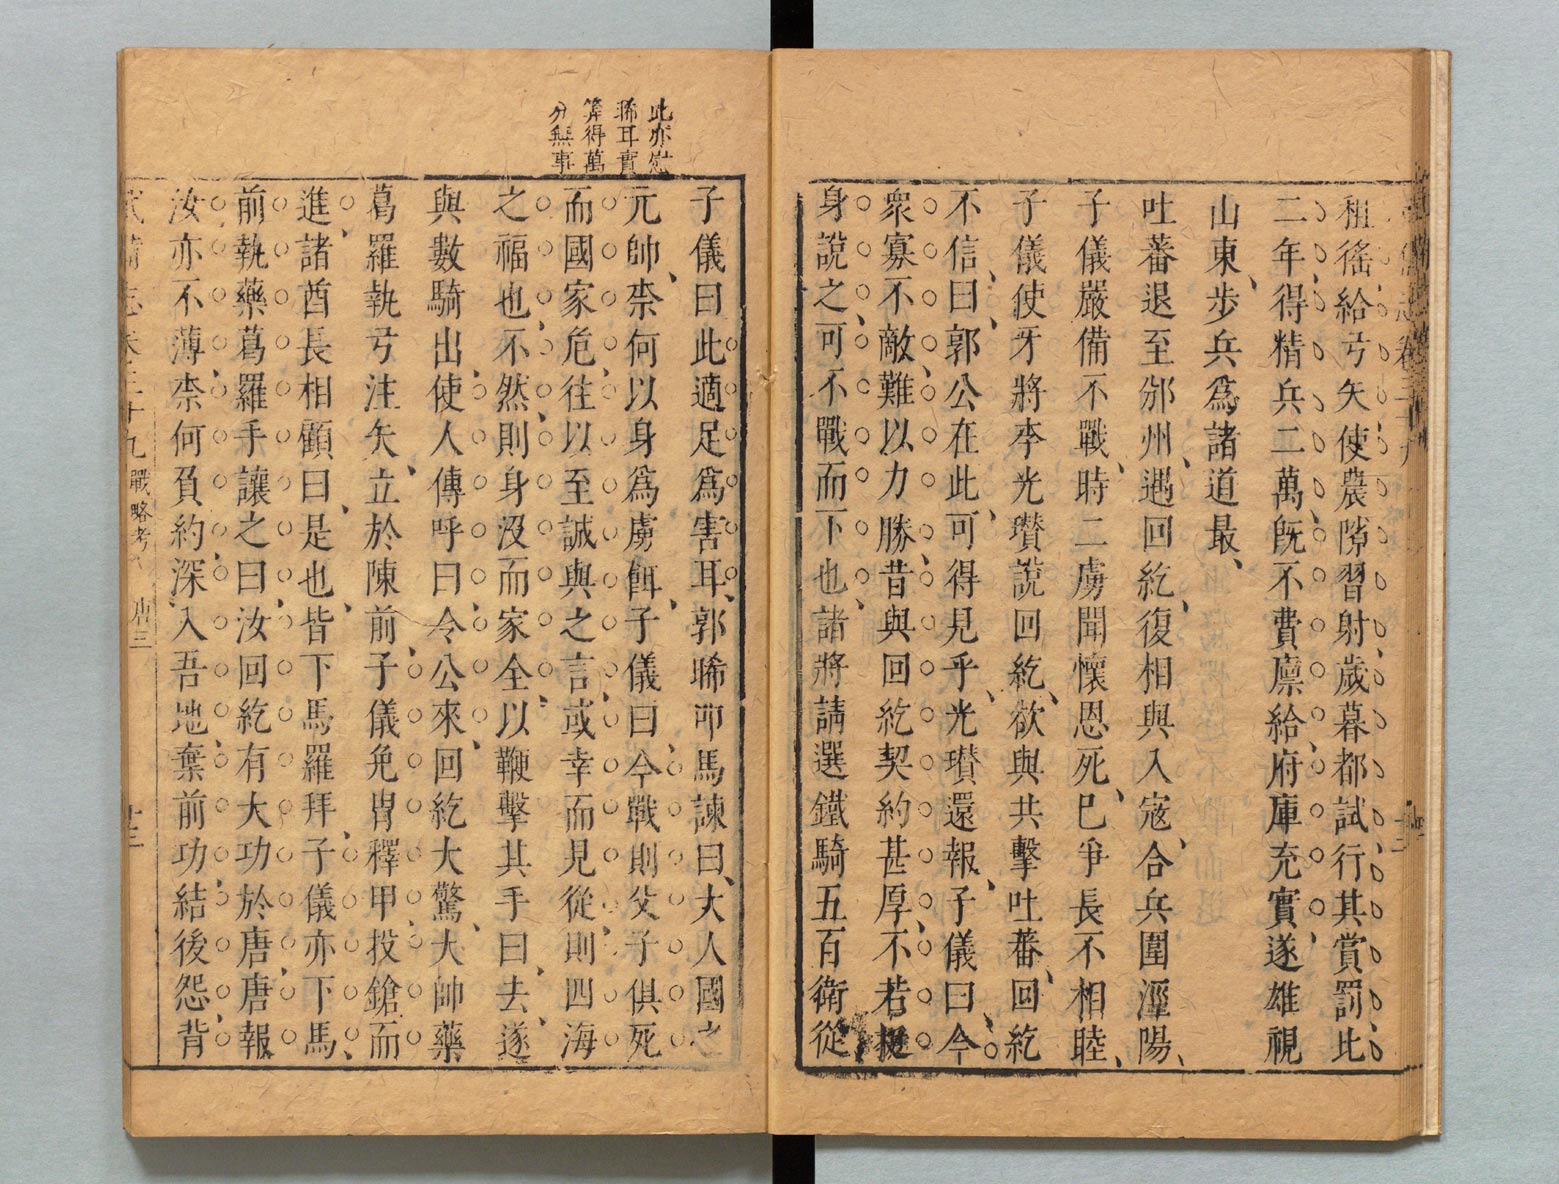 租徭給弓矢使農隙習射歲暮都試行其賞罰比
二年得精兵二萬旣不費廩給府庫充實遂雄視
山東步兵爲諸道最
吐蕃退至邠州遇回紇復相與入寇合兵圍涇陽
子儀嚴備不戰時二虜聞懷恩死巳爭長不相睦
子儀使牙將李光瓚說回紇欲與共擊吐蕃回紇
不信曰郭公在此可得見乎光瓚還報子儀曰今
衆寡不敵難以力勝昔與回紇契約甚厚不若挺
身說之可不戰而下也諸將請選鐵騎五百衛從
此亦怒
晞耳實
筭得萬
分無事
子儀曰此適足爲害耳郭晞叩馬諫曰大人國之
元帥柰何以身爲虜餌子儀曰今戰則父子俱死
而國家危往以至誠與之言或幸而見從則四海
之福也不然則身沒而家全以鞭擊其手曰去遂
與數騎出使人傳呼曰令公來回紇大驚大帥藥
葛羅執弓注矢立於陳前子儀免胄釋甲投鎗而
進諸酋長相顧曰是也皆下馬羅拜子儀亦下馬
前執藥葛羅手讓之曰汝回紇有大功於唐唐報
汝亦不薄柰何負約深入吾地棄前功結後怨背
武備志卷三十九 戰略考 唐三 十三